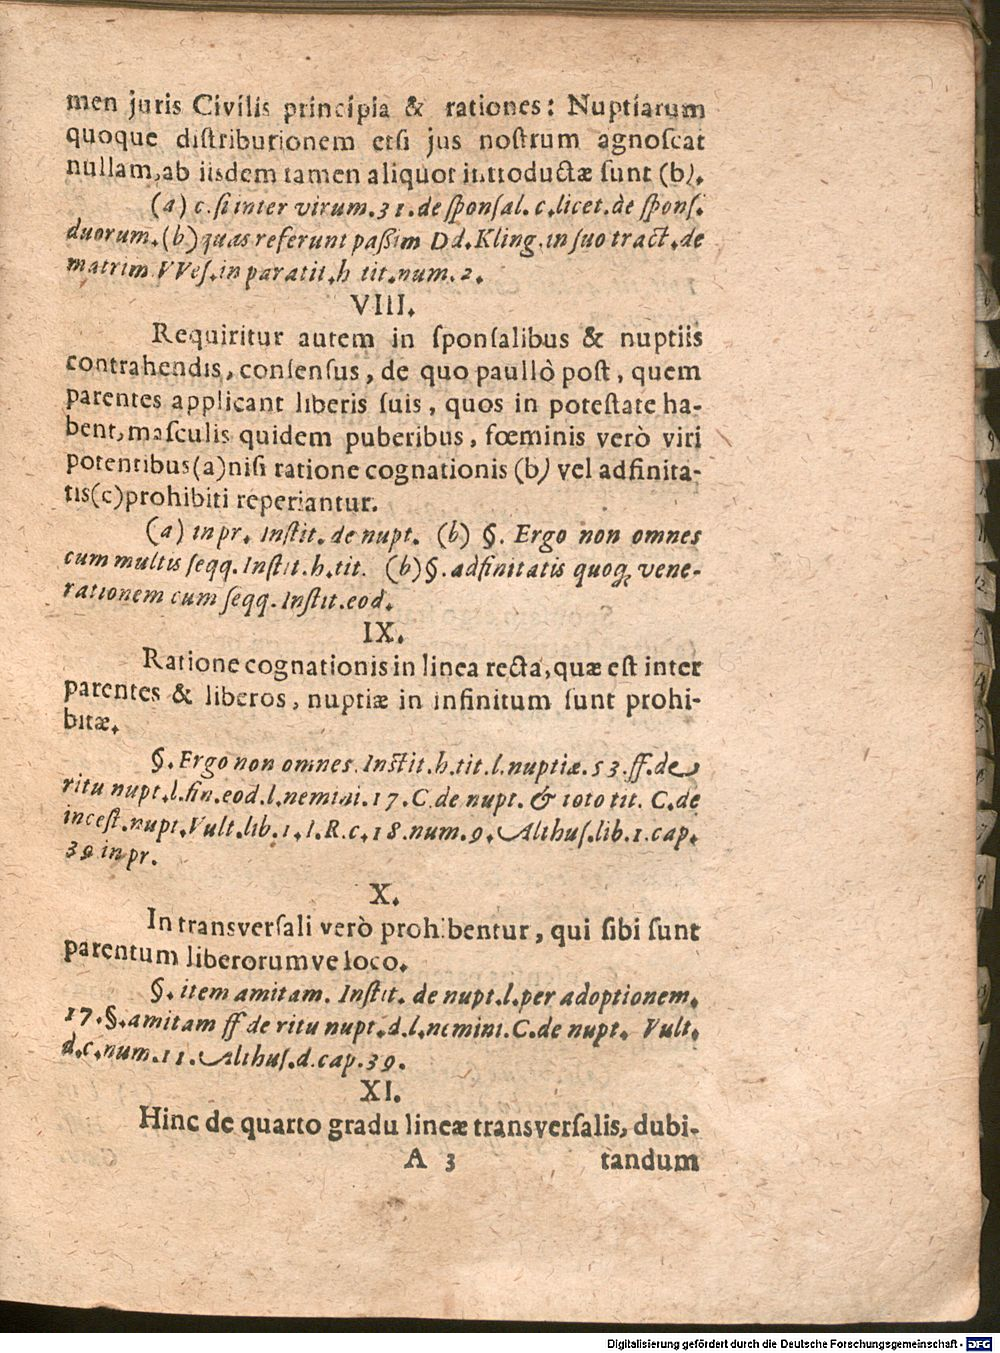 men juris Civilis principia & rationes: Nuptiarum
quoque distributionem etsi jus nostrum agnoscat
nullam, ab iisdem tamen aliquot introductæ sunt (b).
(a) c. si inter virum. 31. de sponsal. c. licet. de spons.
duorum. (b) quas referunt paßim Dd. Kling. in suo tract. de
matrim VVes. in paratit. h tit. num. 2.
VIII.
Requiritur autem in sponsalibus & nuptiis
contrahendis, consensus, de quo paullò post, quem
parentes applicant liberis suis, quos in potestate ha-
bent, masculis quidem puberibus, fœminis verò viri
potentibus (a) nisi ratione cognationis (b) vel adfinita-
tis (c) prohibiti reperiantur.
(a) in pr. Instit. de nupt. (b) §. Ergo non omnes
cum multis seqq. Instit. h. tit. (b) §. adfinitatis quoq; vene-
rationem cum seqq. Instit. eod.
IX.
Ratione cognationis in linea recta, quæ est inter
parentes & liberos, nuptiæ in infinitum sunt prohi-
bitæ.
§. Ergo non omnes. Instit. h. tit. l. nuptiæ. 53. ff. de
ritu nupt. l. fin. eod. l. nemini. 17. C. de nupt. & toto tit. C. de
incest. nupt. Vult. lib. 1. I. R. c. 18. num. 9. Althus. lib. 1. cap.
39 in pr.
X.
In transversali verò prohibentur, qui sibi sunt
parentum liberorumve loco.
§. item amitam. Instit. de nupt. l. per adoptionem.
17. §. amitam ff de ritu nupt. d. l. nemini. C. de nupt. Vult.
d. c. num. 11. Althus. d. cap. 39.
XI.
Hinc de quarto gradu lineæ transversalis, dubi-
A 3 tandum
Digitalisierung gefördert durch die Deutsche Forschungsgemeinschaft - DFG